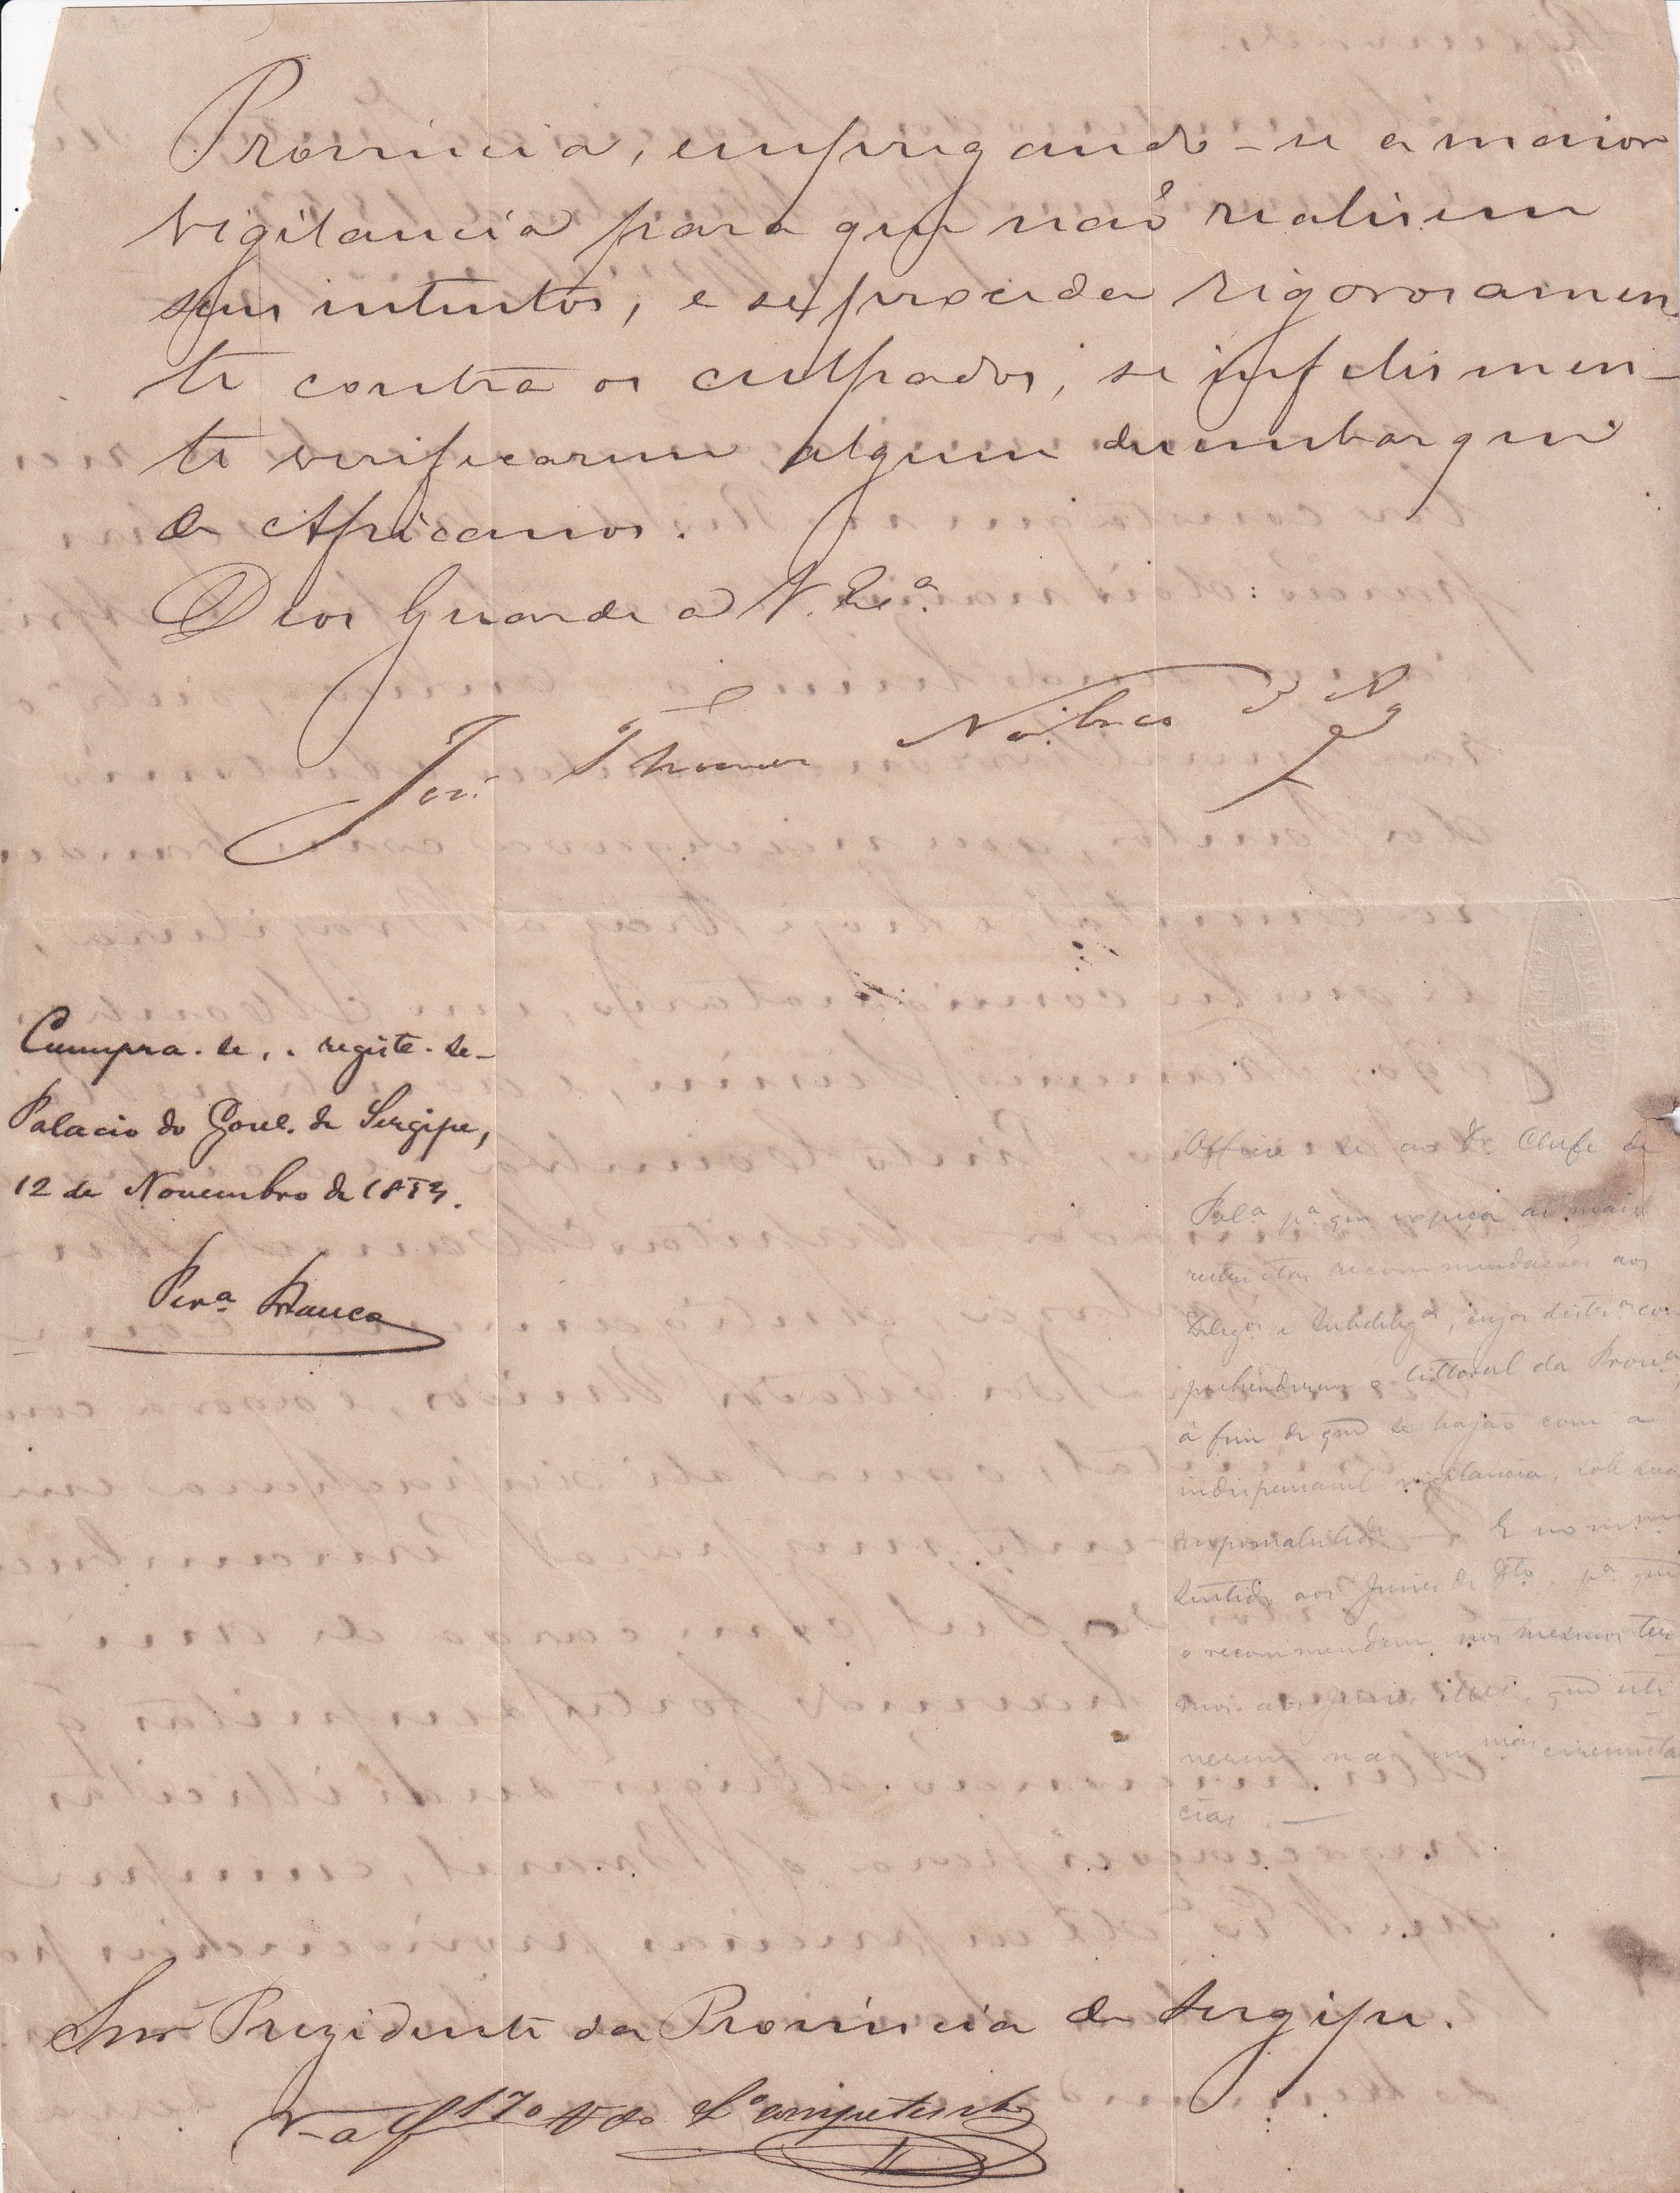 Provincia, empregando-se a maior
vigilancia para que não realisem
seus intentos, e se proceder rigorosamen
te contra os culpados, se infelismen-
te verificarem algum desembarque
de Africanos.
Deos Guarde a V. Exª.
José Thomaz Nabuco d'Arº
Cumpra-se, e registe-se-
Palacio do Govel. de Sergipe,
12 de Novembro de 1853.
Perª Franco
Officie se ao Dr Chefe de
Polª pª que expeça as mais
restrictas recommendações aos
Delegos e Subdelegos, cujos distros com
prehenderem o littoral da Provª
á fim de que se hajão com a
indispensavel vigilancia, sob sua
responsabilide — E no mesmo
sentido aos Juises de Dto, pª que
o recommendem nos mesmos ter
mos aos Juises que esti
verem nas mmas circunsta
cias —
Snr Prezidente da Provincia de Sergipe.
V-a f 170 do Lº competente